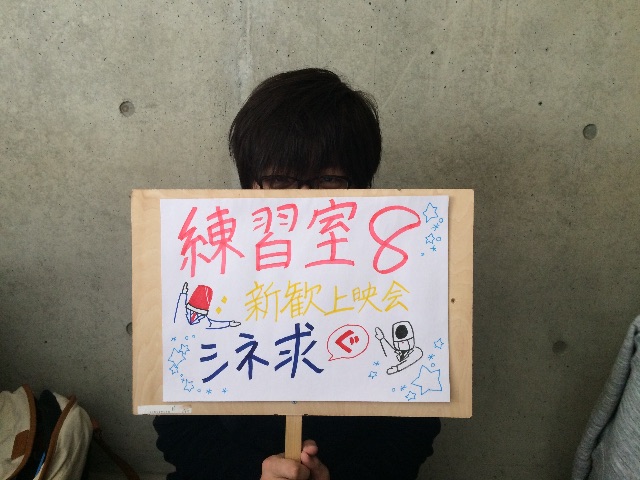 練習室8
新歓上映会
シネ求ぐ